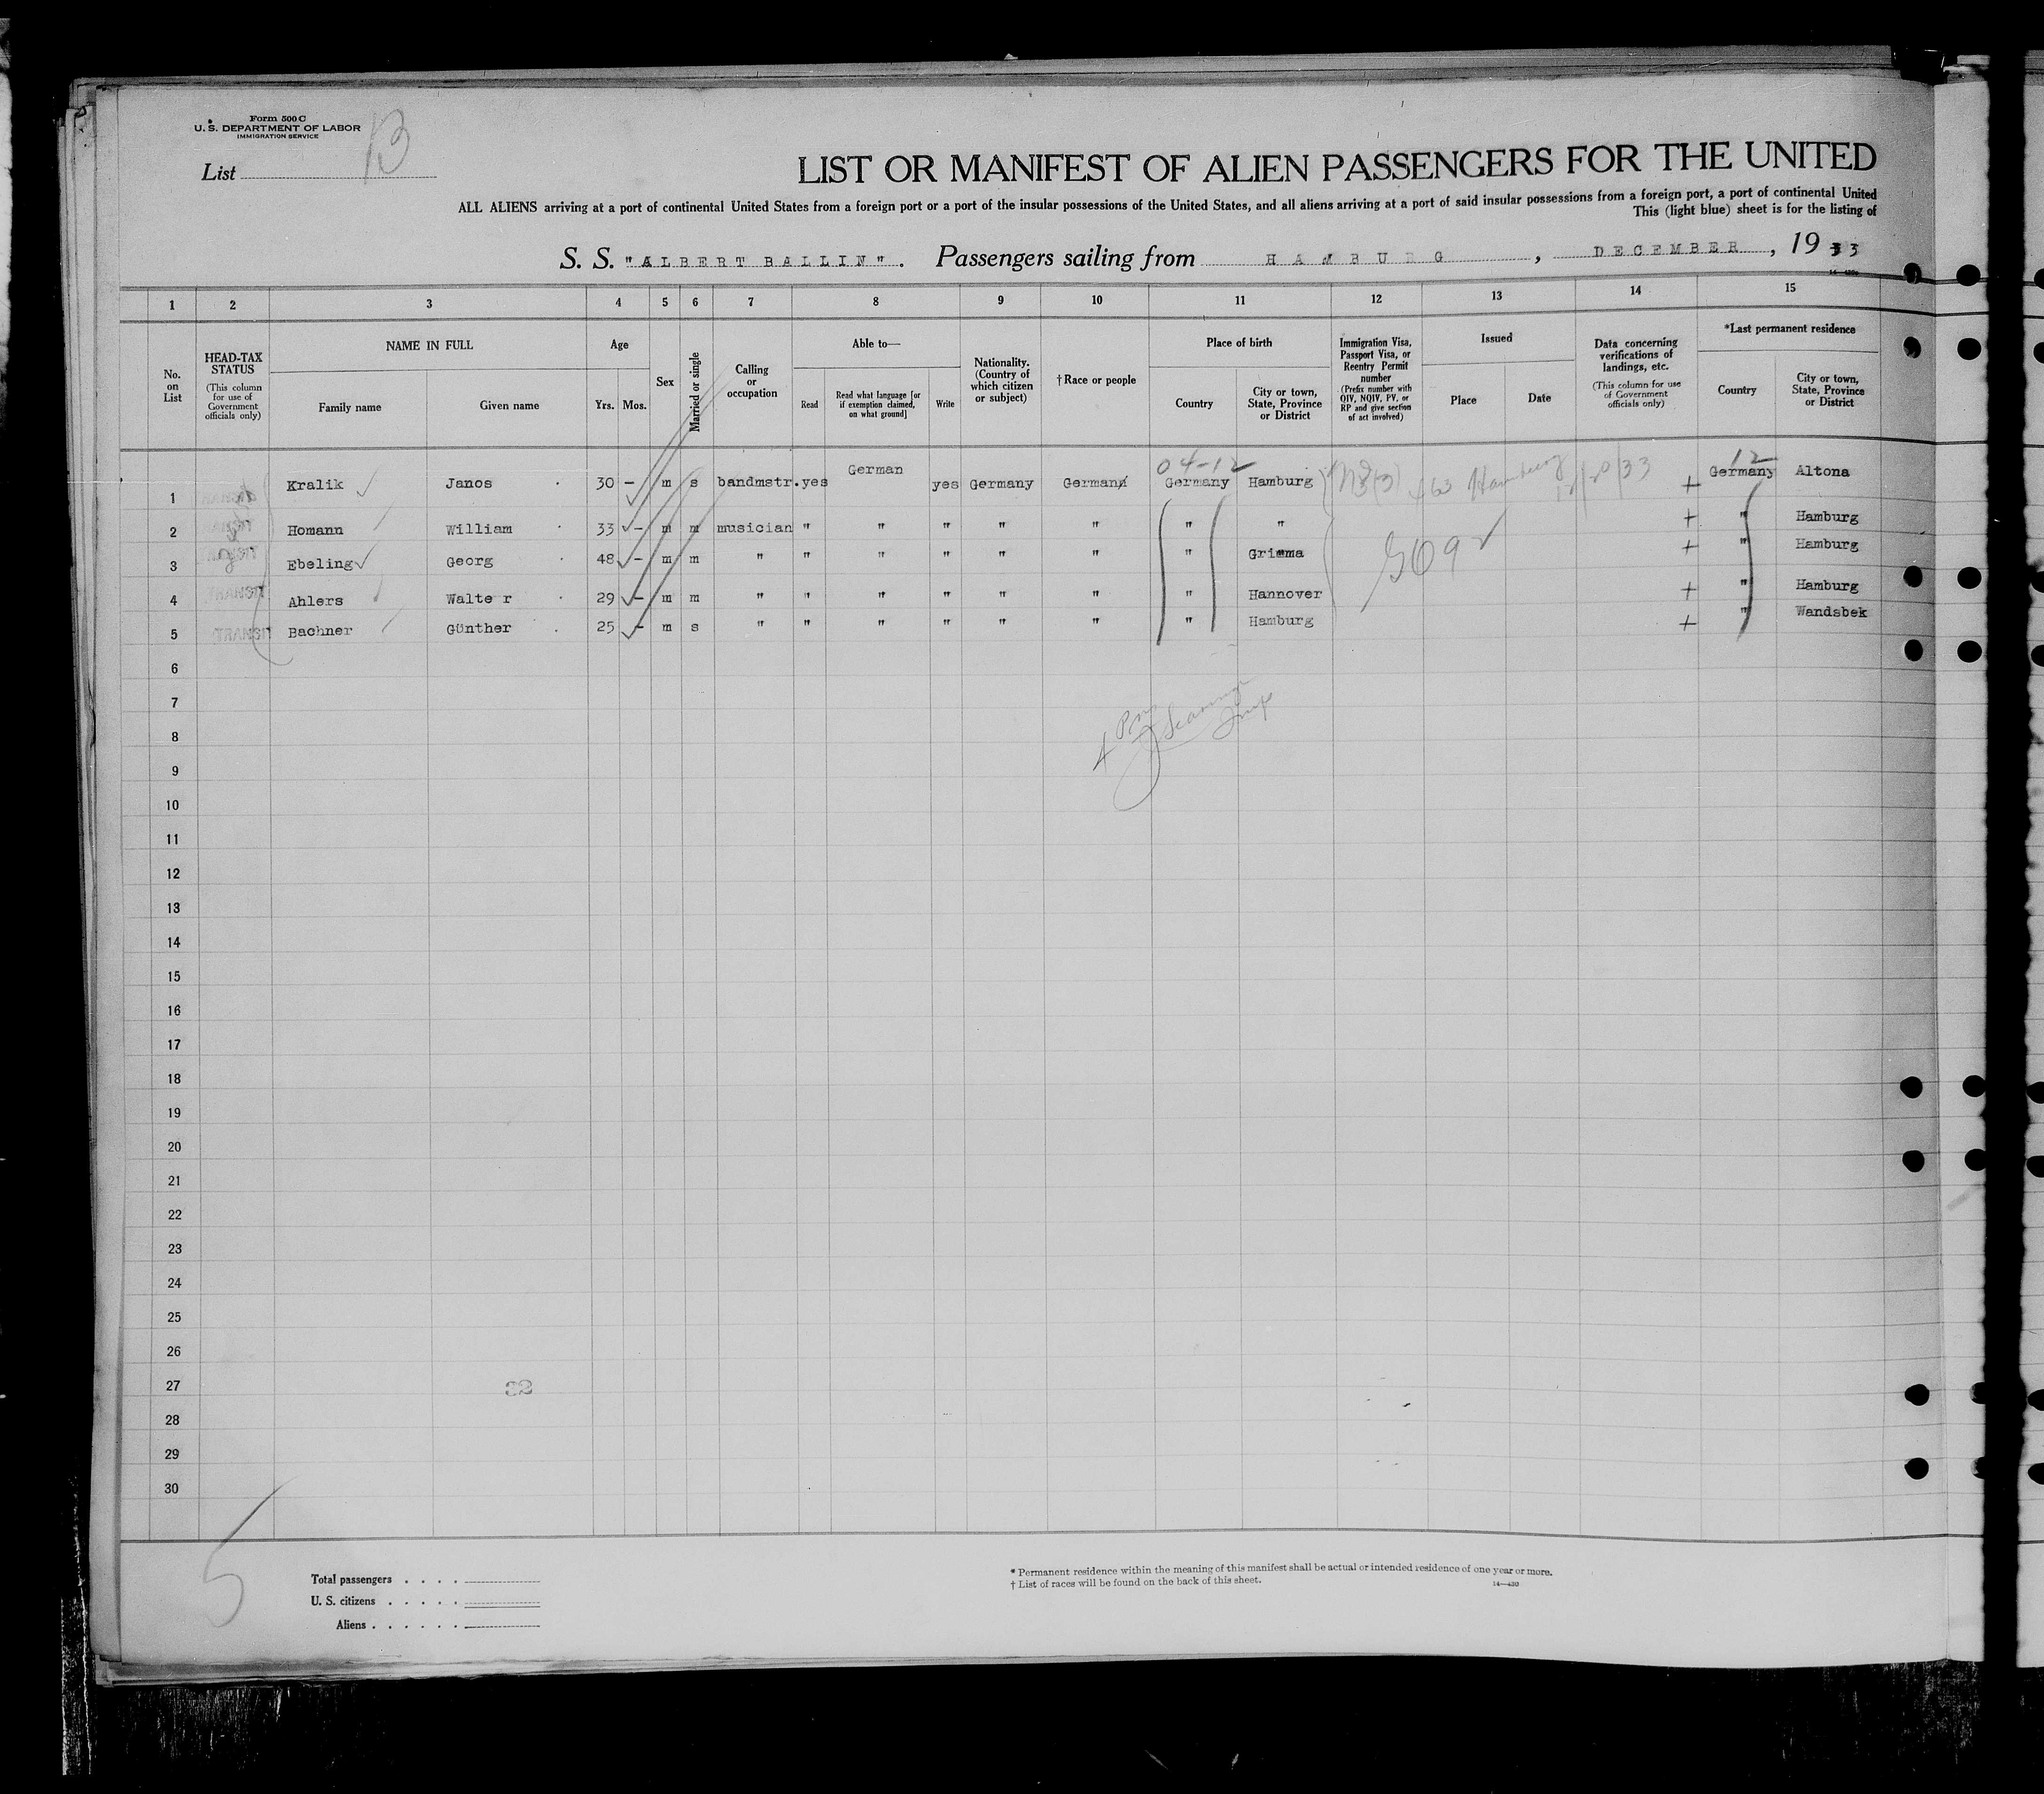 Form 500 C
U. S. DEPARTMENT OF LABOR
IMMIGRATION SERVICE
List B
LIST OR MANIFEST OF ALIEN PASSENGERS FOR THE UNITED
ALL ALIENS arriving at a port of continental United States from a foreign port or a port of the insular possessions of the United States, and all aliens arriving at a port of said insular possessions from a foreign port, a port of continental United
This (light blue) sheet is for the listing of
S. S. "ALBERT BALLIN". Passengers sailing from HAMBURG, DECEMBER, 1933
1 2 3 4 5 6 7 8 9 10 11 12 13 14 15
No. on List
HEAD-TAX STATUS (This column for use of Government officials only)
NAME IN FULL
Family name
Given name
Age
Yrs. Mos.
Sex
Married or single
Calling or occupation
Able to—
Read
Read what language [or if exemption claimed, on what ground]
Write
Nationality. (Country of which citizen or subject)
† Race or people
Place of birth
Country
City or town, State, Province or District
Immigration Visa, Passport Visa, or Reentry Permit number (Prefix number with QIV, NQIV, PV, or RP and give section of act involved)
Issued
Place
Date
Data concerning verifications of landings, etc. (This column for use of Government officials only)
*Last permanent residence
Country
City or town, State, Province or District
04-12 12
1 Kralik Janos 30 - m s bandmstr. yes German yes Germany German Germany Hamburg 3(3) 463 Hamburg 12/20/33 + Germany Altona
2 TRANSIT Homann William 33 - m m musician " " " " " " " + " Hamburg
3 TRANSIT Ebeling Georg 48 - m m " " " " " " " Grimma + " Hamburg
4 TRANSIT Ahlers Walte r 29 - m m " " " " " " " Hannover + " Hamburg
5 TRANSIT Bachner Günther 25 - m s " " " " " " " Hamburg + " Wandsbek
6
7
8
9
10
11
12
13
14
15
16
17
18
19
20
21
22
23
24
25
26
27
28
29
30
32
5
Total passengers . . . .
U. S. citizens . . . . .
Aliens . . . . . .
* Permanent residence within the meaning of this manifest shall be actual or intended residence of one year or more.
† List of races will be found on the back of this sheet.
14—430